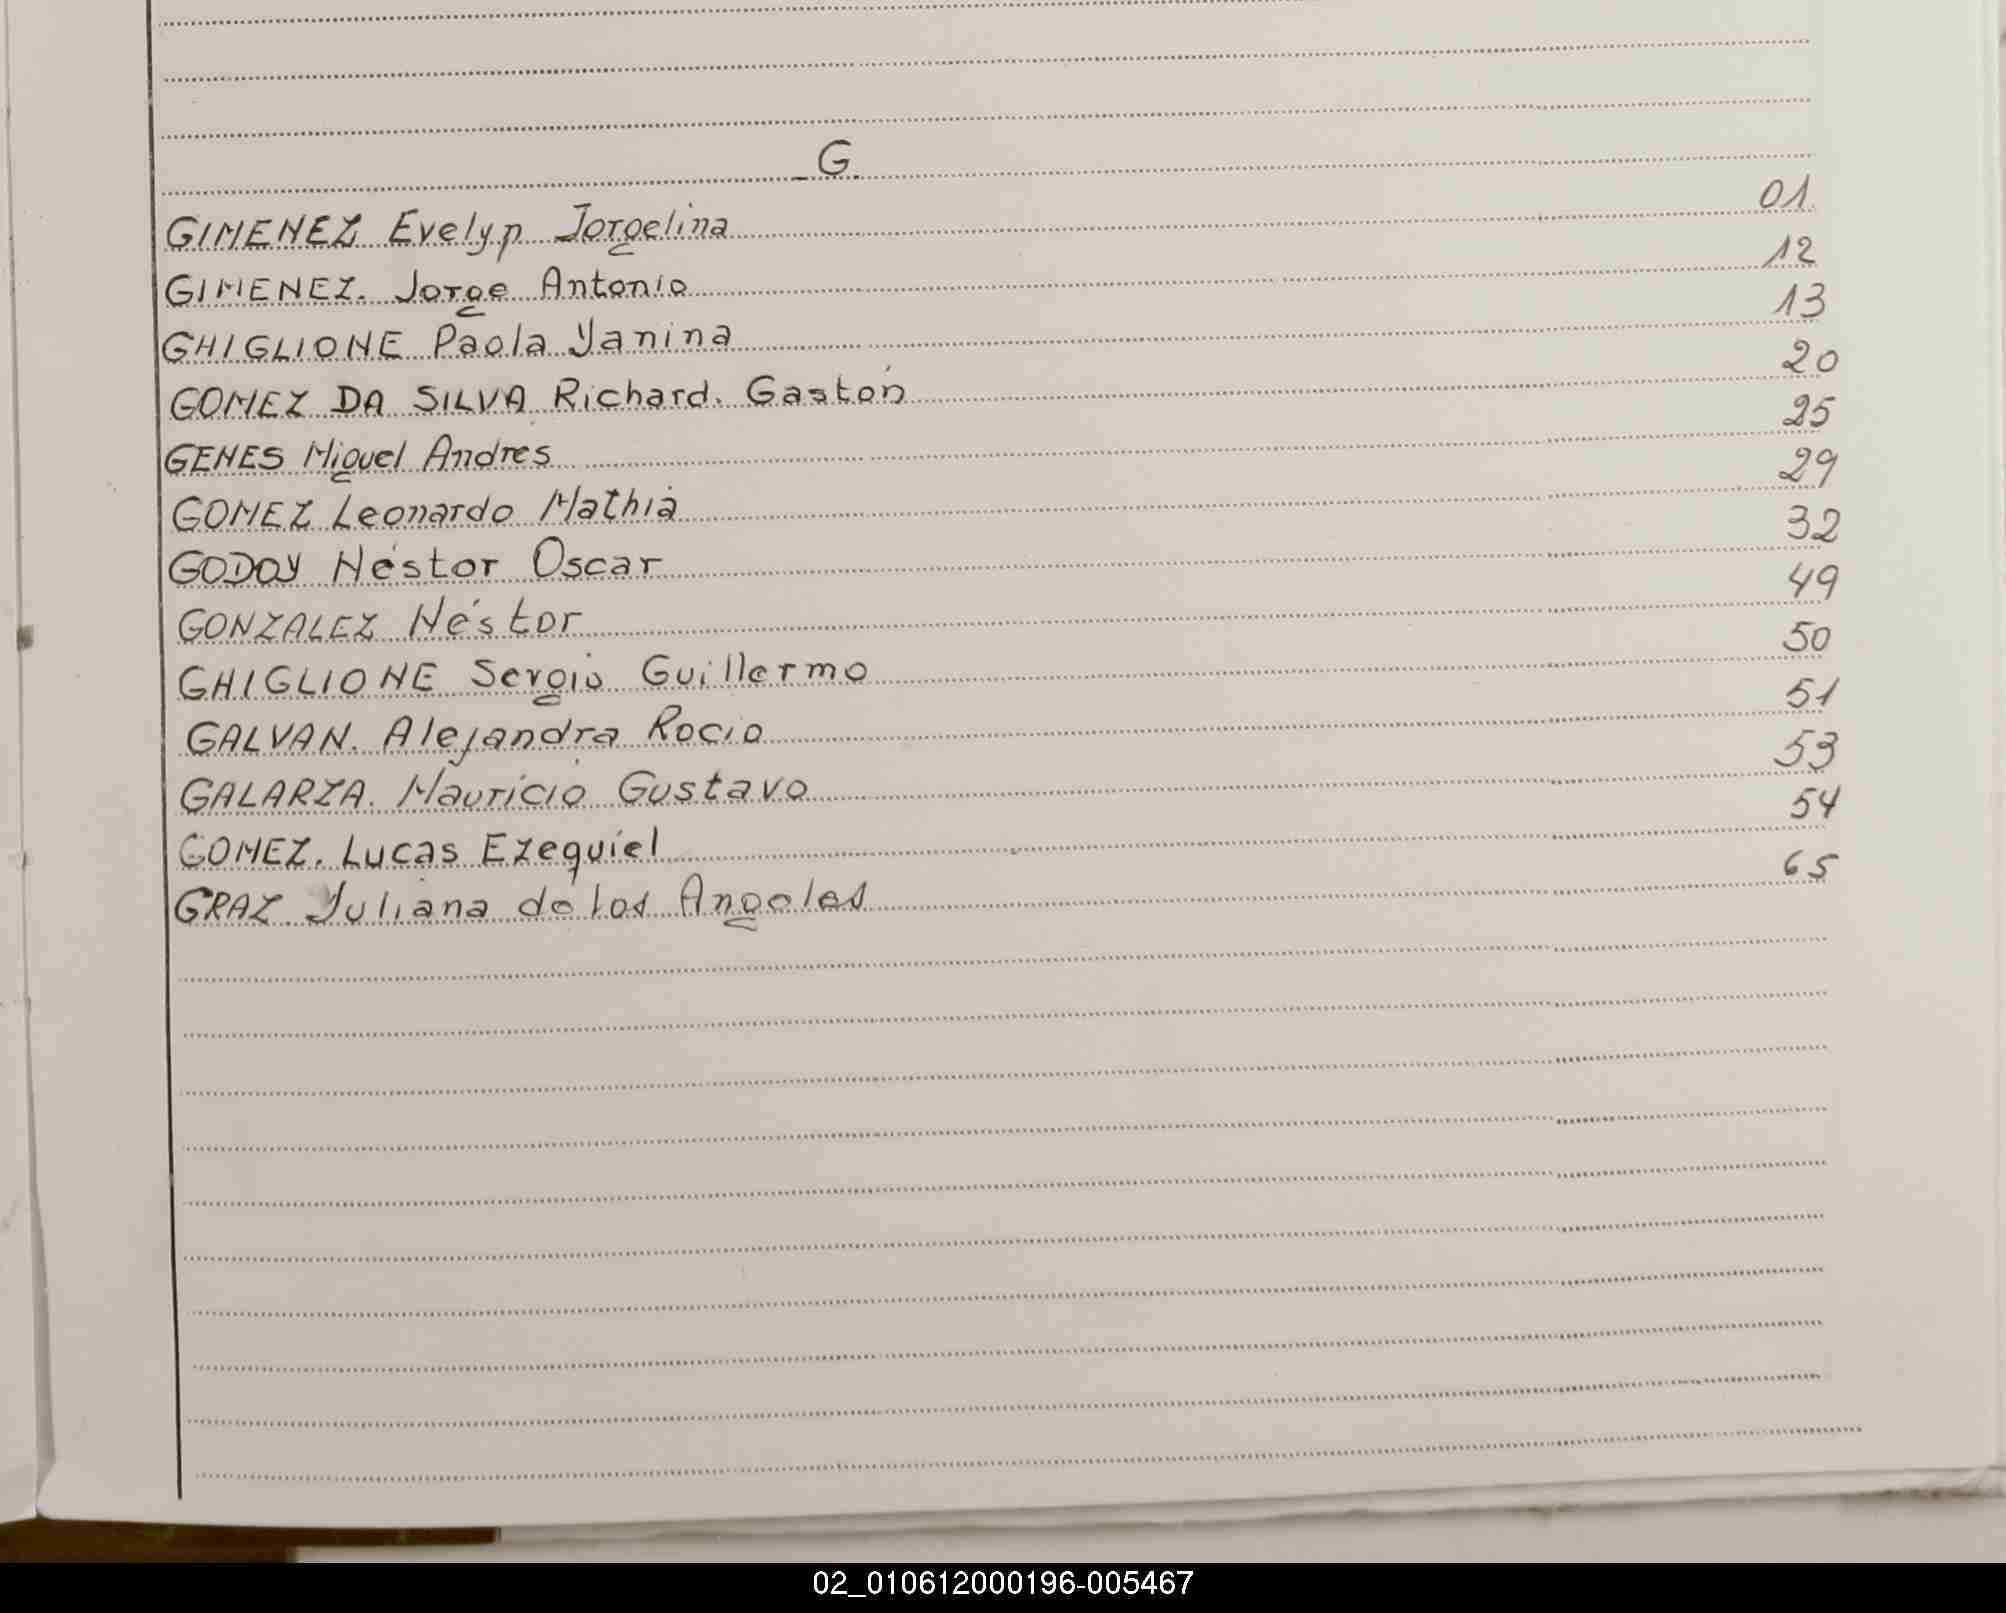 G.
GIMENEZ Evelyn Jorgelina 01
GIMENEZ. Jorge Antonio 12
GHIGLIONE Paola Yanina 13
GOMEZ DA SILVA Richard. Gastón 20
GENES Miguel Andres 25
GOMEZ Leonardo Mathia 29
GODOY Néstor Oscar 32
GONZALEZ Néstor 49
GHIGLIONE Sergio Guillermo 50
GALVAN. Alejandra Rocio 51
GALARZA. Mauricio Gustavo 53
GOMEZ. Lucas Ezequiel 54
GRAZ Juliana de los Angeles 65
02_010612000196-005467